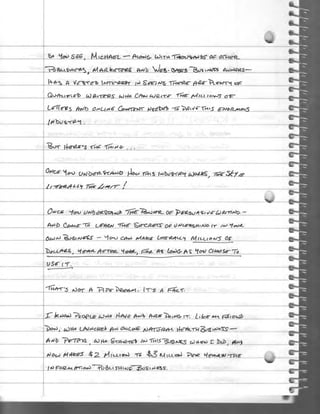 So You SEE, MICHAEL — ALONG WITH THOUSANDS OF OTHER
PUBLISHERS, MARKETERS AND WEB-BASED BUSINESS OWNERS—
HAS A VESTED INTEREST IN SEEING THERE ARE PLENTY OF
QUALIFIED WRITERS WHO CAN WRITE THE MILLIONS OF
LETTERS AND ONLINE CONTENT NEEDED TO DRIVE THIS ENORMOUS
INDUSTRY.
BUT HERE'S THE THING...
ONCE YOU UNDERSTAND HOW THIS INDUSTRY WORKS, THE SKY IS
LITERALLY THE LIMIT!
ONCE YOU UNDERSTAND THE POWER OF PERSUASIVE WRITING -
AND COME TO LEARN THE SECRETS OF UNLEASHING IT IN YOUR
OWN BUSINESS - YOU CAN MAKE LITERALLY MILLIONS OF
DOLLARS, YEAR AFTER YEAR, FOR AS LONG AS YOU CHOOSE TO
USE IT.
THAT'S NOT A PIPE DREAM. IT'S A FACT.
I KNOW PEOPLE WHO HAVE AND ARE DOING IT. LIKE MY FRIEND
DON, WHO LAUNCHED AN ONLINE NATURAL HEALTH BUSINESS—
AND PETER, WHO STARTED IN THIS BUSINESS WHEN I DID, AND
NOW MAKES $2 MILLION TO $3 MILLION PER YEAR IN THE
INFORMATION PUBLISHING BUSINESS.